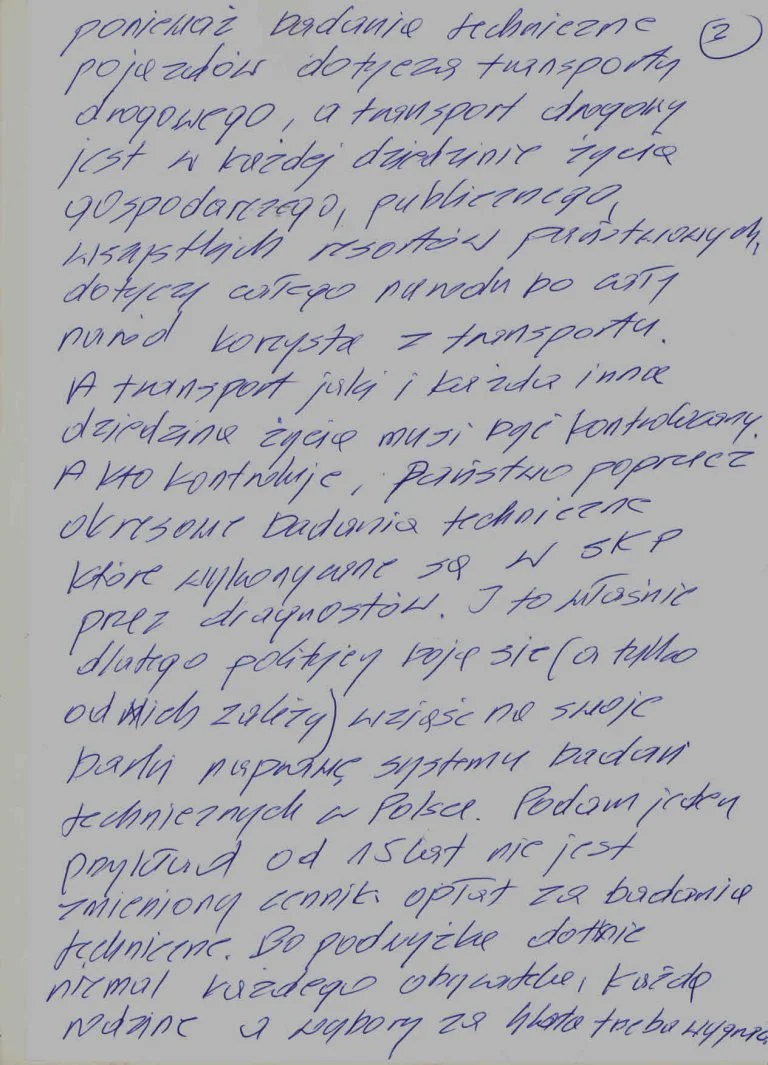 ponieważ badania techniczne 2
pojazdów dotyczą transportu
drogowego, a transport drogowy
jest w każdej dziedzinie życia
gospodarczego, publicznego,
wszystkich resortów państwowych,
dotyczy całego narodu bo cały
naród korzysta z transportu.
A transport jak i każda inna
dziedzina życia musi być kontrolowany.
A kto kontroluje, Państwo poprzez
okresowe badania techniczne
które wykonywane są w SKP
przez diagnostów. I to właśnie
dlatego politycy boją się (a tylko
od nich zależy) wziąść na swoje
barki naprawę systemu badań
technicznych w Polsce. Podam jeden
przykład od 15 lat nie jest
zmieniony cennik opłat za badania
techniczne. Bo podwyżka dotknie
niemal każdego obywatela, każdą
rodzinę a wybory za trzeba wygrać